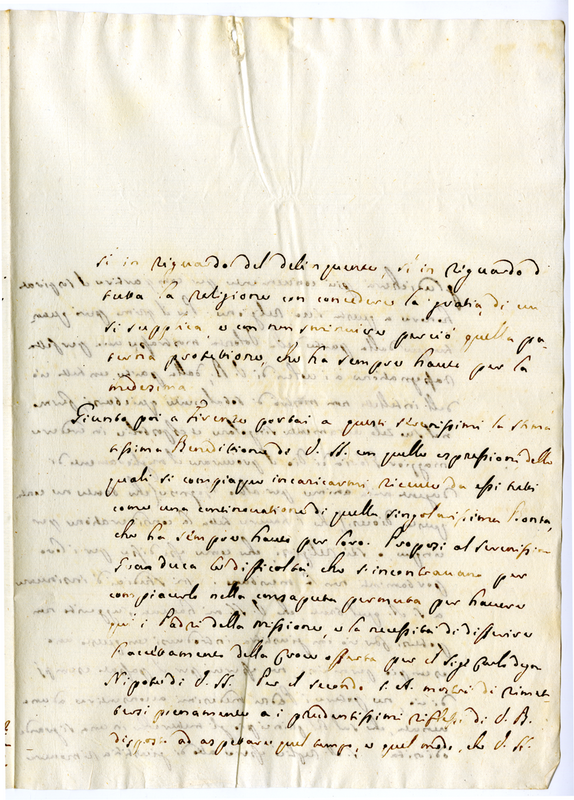 sì in riguardo del delinquente sì in riguardo di
tutta la Religione con concedere la gratia, di cui
si supplica, e con non sminuire perciò quella pa-
terna protettione, che ha sempre hauto per la
medesima
Giunto poi a Firenze portai a questi Serenissimi la stima
tissima Beneditione di V. SS. con quelle espressioni delle
quali si compiaque incaricarmi, riceuuta da essi tutti
come una continouatione di quella singolarissima Bontà,
che ha sempre hauto per loro. Proposi al Serenissimo
Gran Duca le difficoltà, che s'incontrauano per
compiacerlo nella consaputa permuta per hauere
qui i Padri della Missione, e la necessità di differire
l'accettamento della Croce offerta per il Sigr Carlo degn
Nipote di V. SS. Per il secondo S. A. mostrò di rimet
tersi pienamente a i prudentissimi riflessi di V. B.
disposto ad aspettare quel tempo, e quel modo, che V. SS.